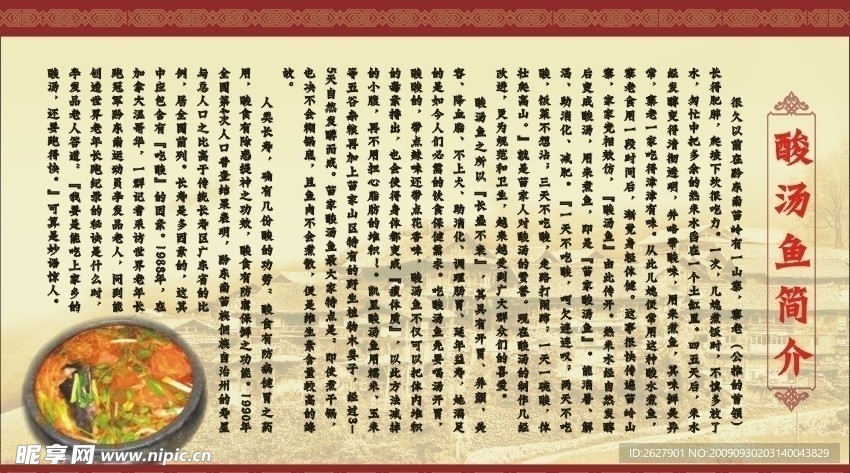 酸汤鱼简介
很久以前在黔东南苗岭有一山寨，寨老（公推的首领）
长得肥胖，爬坡下坎很吃力。一次，几媳煮饭时，不慎多放了
水，匆忙中把多余的热米水舀在一个土缸里。四五天后，米水
经发酵变得清彻透明，并略带酸味，用来煮鱼，其味鲜美异
常，寨老一家吃得津津有味。从此几媳便常用这种酸水煮鱼，
寨老食用一段时间后，渐觉身轻体健。这事很快传遍苗岭山
寨，家家竞相效仿，『酸汤鱼』由此传开。热米水经自然发酵
后变成酸汤，用来煮鱼，即是『苗家酸汤鱼』。能消暑、解
渴、助消化、减肥。『一天不吃酸，呵欠连连叹；两天不吃
酸，饭菜不想沾；三天不吃酸，走路打闹蹿；一天一碗酸，体
壮爬高山。』就是苗家人对酸汤的赞誉。现在酸汤的制作几经
改进，更为规范和卫生，越来越受到广大群友们的喜爱。
酸汤鱼之所以『长盛不衰』，其具有开胃、养颜、美
容、降血脂、不上火、助消化、调理肠胃、延年益寿，她满足
的是如今人们必需的饮食保健需求。吃酸汤鱼先要喝汤开胃，
酸酸的，带点辣味还带点花香味，酸汤鱼不仅可以把体内堆积
的毒素排出，也会使得身体都变成『瘦体质』，以此方法减掉
的小腹，再不用担心脂肪的堆积！凯里酸汤鱼用糯米、玉米
等五谷杂粮再加上苗家山区特有的野生植物木姜子，经过3—
5天自然发酵而成。苗家酸汤鱼最大特点是，即使煮干锅，
也决不会糊锅底，且鱼肉不会煮散，便是维生素含量较高的缘
故。
人类长寿，确有几份酸的功劳。酸食有防病健胃之药
用，酸食有除恶提神之功效，酸食有防腐保鲜之功能。1990年
全国第4次人口普查结果表明，黔东南苗族侗族自治州的寿星
与总人口之比高于传统长寿区广东省的比
例，居全国前列。长寿是多因素的，这其
中应包含有『吃酸』的因素。1988年，在
加拿大温哥华，一群记者采访世界老年长
跑冠军黔东南运动员李发品老人，问到能
创造世界老年长跑纪录的秘诀是什么时，
李发品老人答道：『我要是能吃上家乡的
酸汤，还要跑得快。』可算是妙语惊人。
昵享网 www.nipic.cn
ID:2627901 NO:20090930203140043829